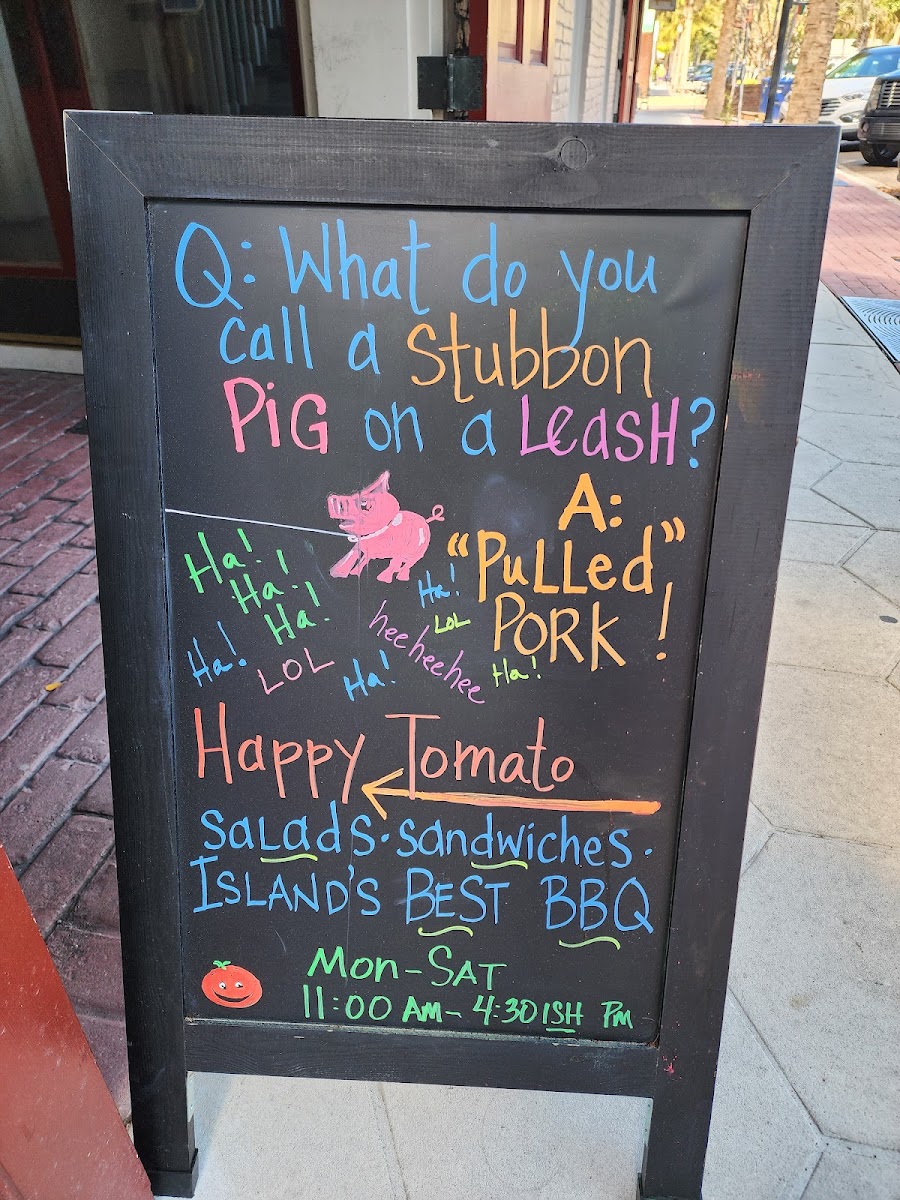 Q: What do you
call a Stubbon
PiG on a LeasH?
A:
"PuLLed"
PORK!
Ha!
Ha!
Ha!
Ha!
LOL
heeheehee
Ha!
LOL
Ha!
Ha!
Happy Tomato
saLads · sandwiches ·
ISLAND'S BEST BBQ
Mon-SAT
11:00 AM - 4:30 ISH PM